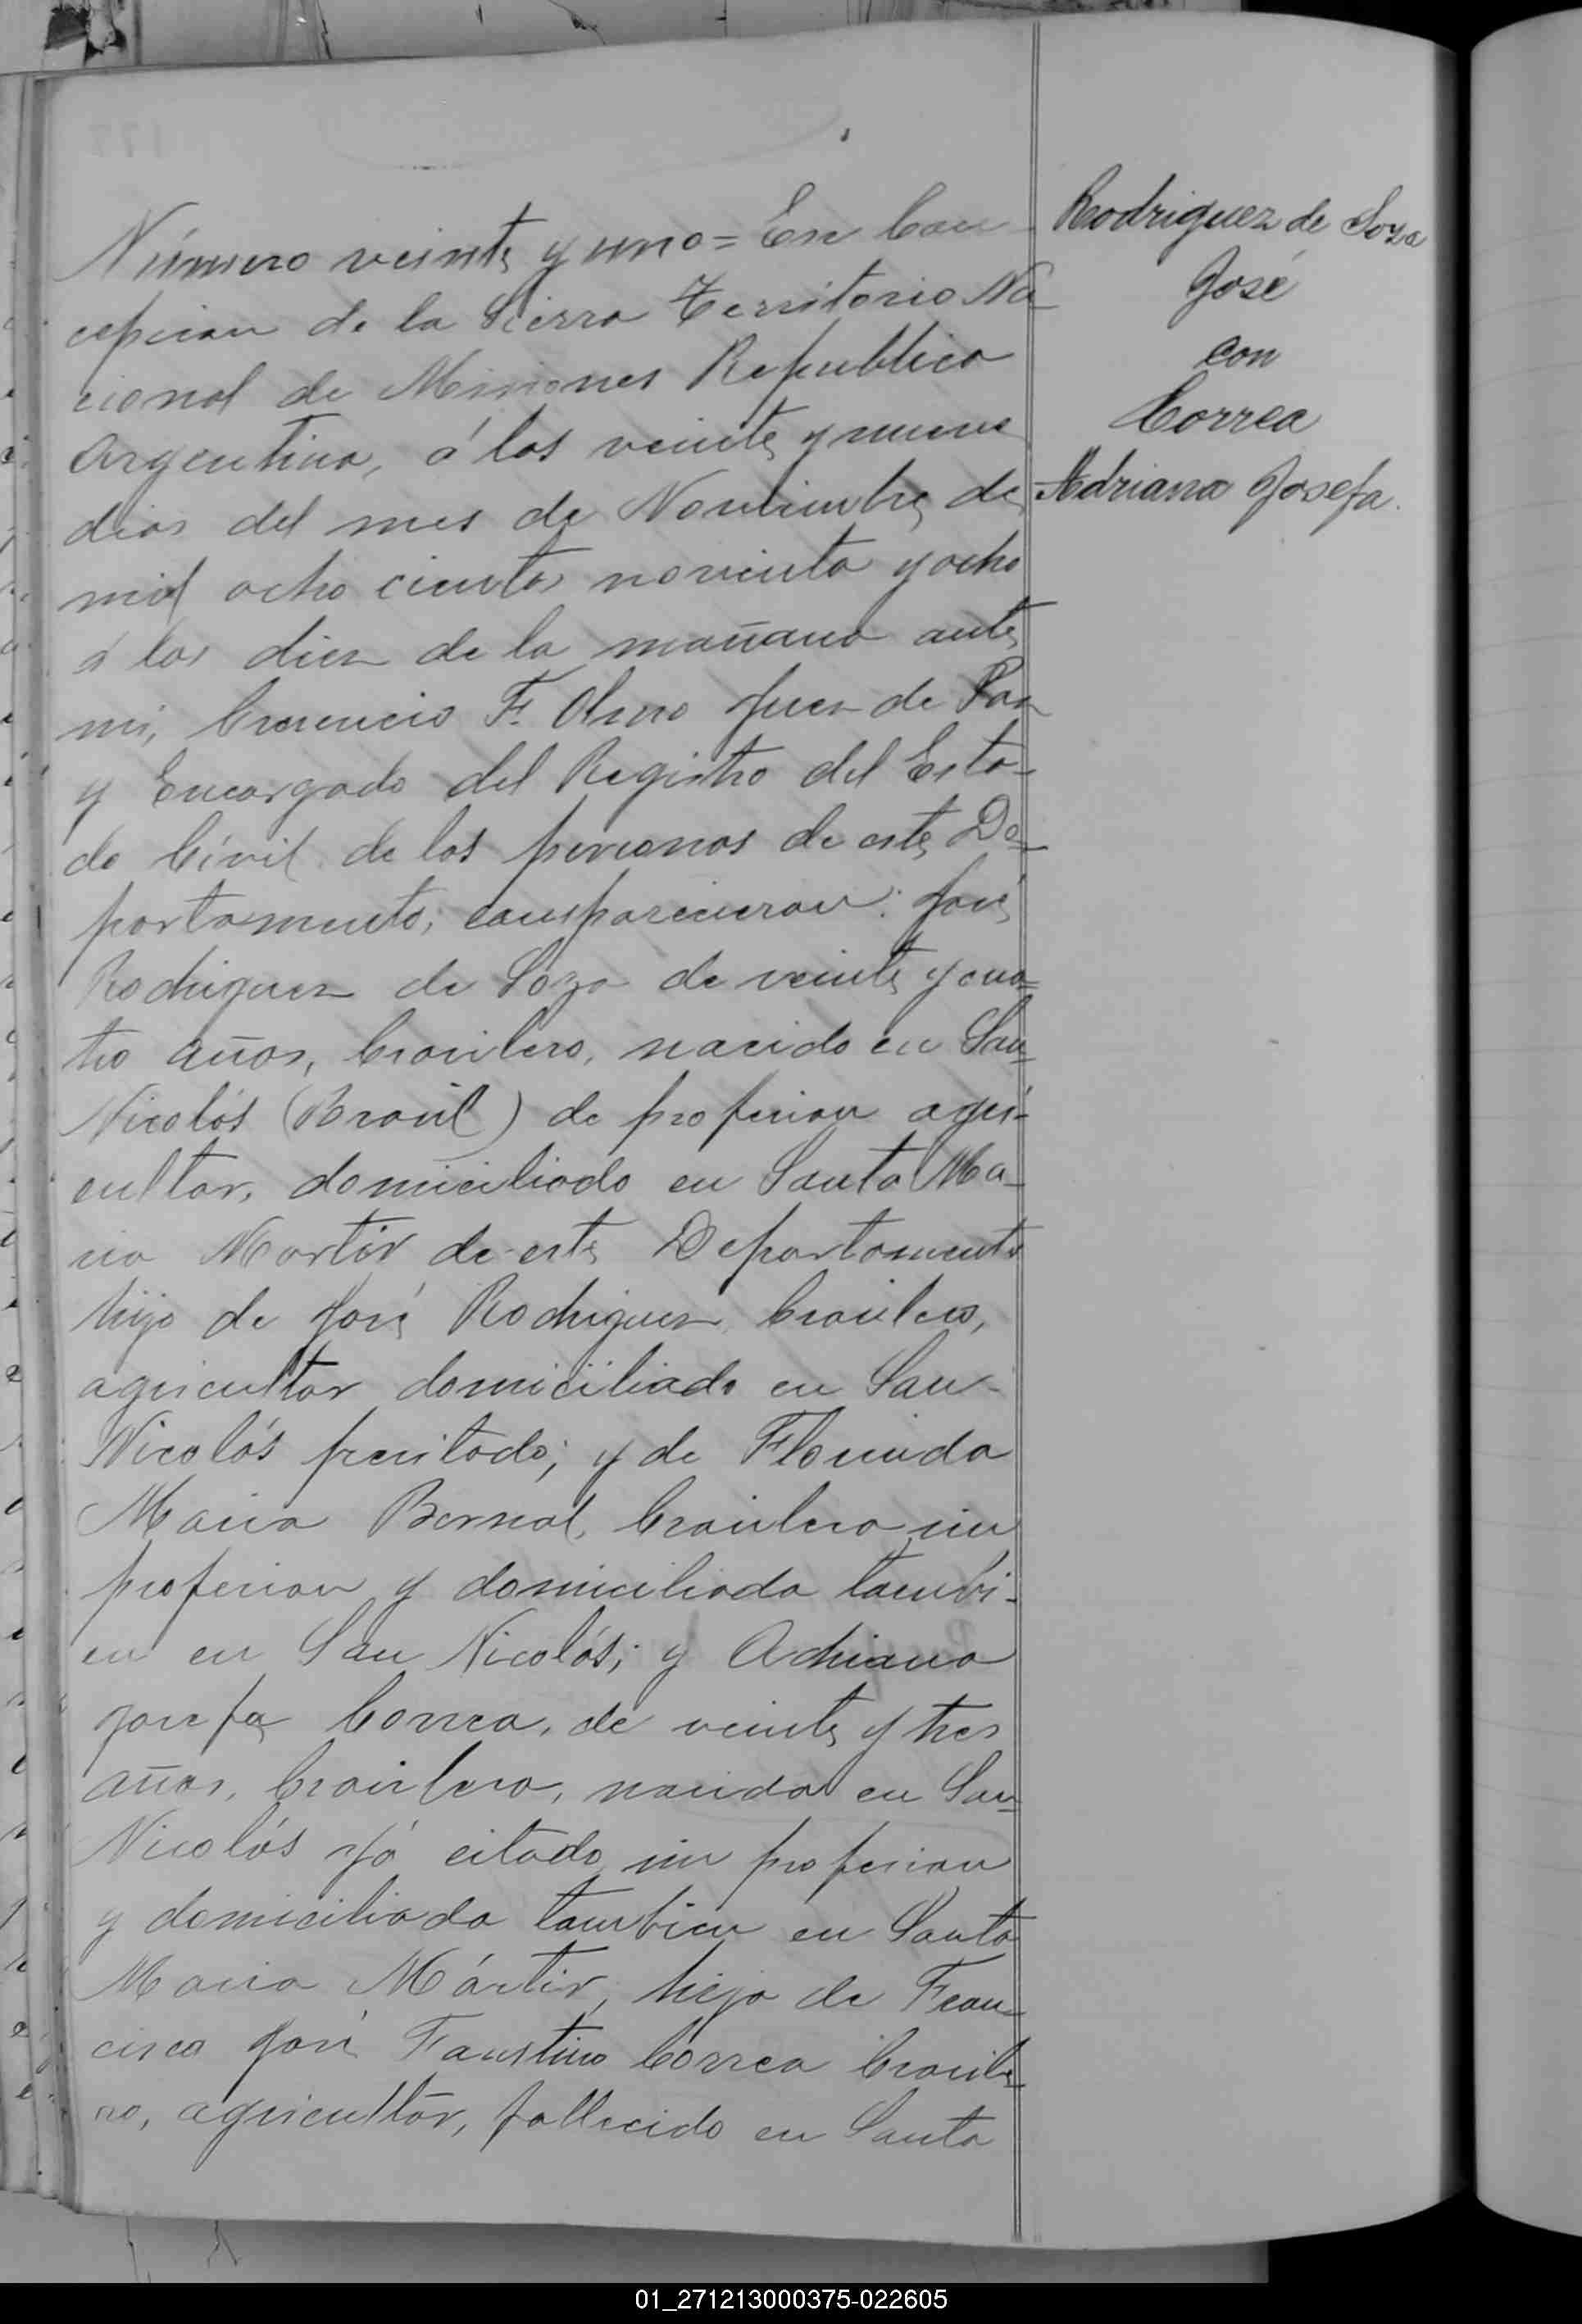 Número veinte y uno = En Con-
cepcion de la Sierra Territorio Na-
cional de Misiones Republica
Argentina, á los veinte y nueve
dias del mes de Noviembre de
mil ocho cientos noventa y ocho
á las diez de la mañana ante
mi, F. Olmo Juez de Paz
y Encargado del Registro del Esta-
do Civil de las personas de este De-
partamento; comparecieron: José
Rodriguez de Soza de veinte y cua-
tro años, brasilero, nacido en San
Nicolás (Brasil) de profesion agri-
cultor, domiciliado en Santa Ma-
ria Martir de este Departamento
hijo de José Rodriguez, brasilero,
agricultor domiciliado en San
Nicolás precitado; y de
Maria Bernal, brasilera sin
profesion y domiciliada tambi-
en en San Nicolás; y Adriana
Josefa Correa, de veinte y tres
años, brasilera, nacida en San
Nicolás yá citado, sin profesion
y domiciliada tambien en Santa
Maria Mártir, hija de Fran-
cisco José Faustino Correa brasile-
ro, agricultor, fallecido en Santa
Rodriguez de Soza
José
con
Correa
Adriana Josefa.
01_271213000375-022605